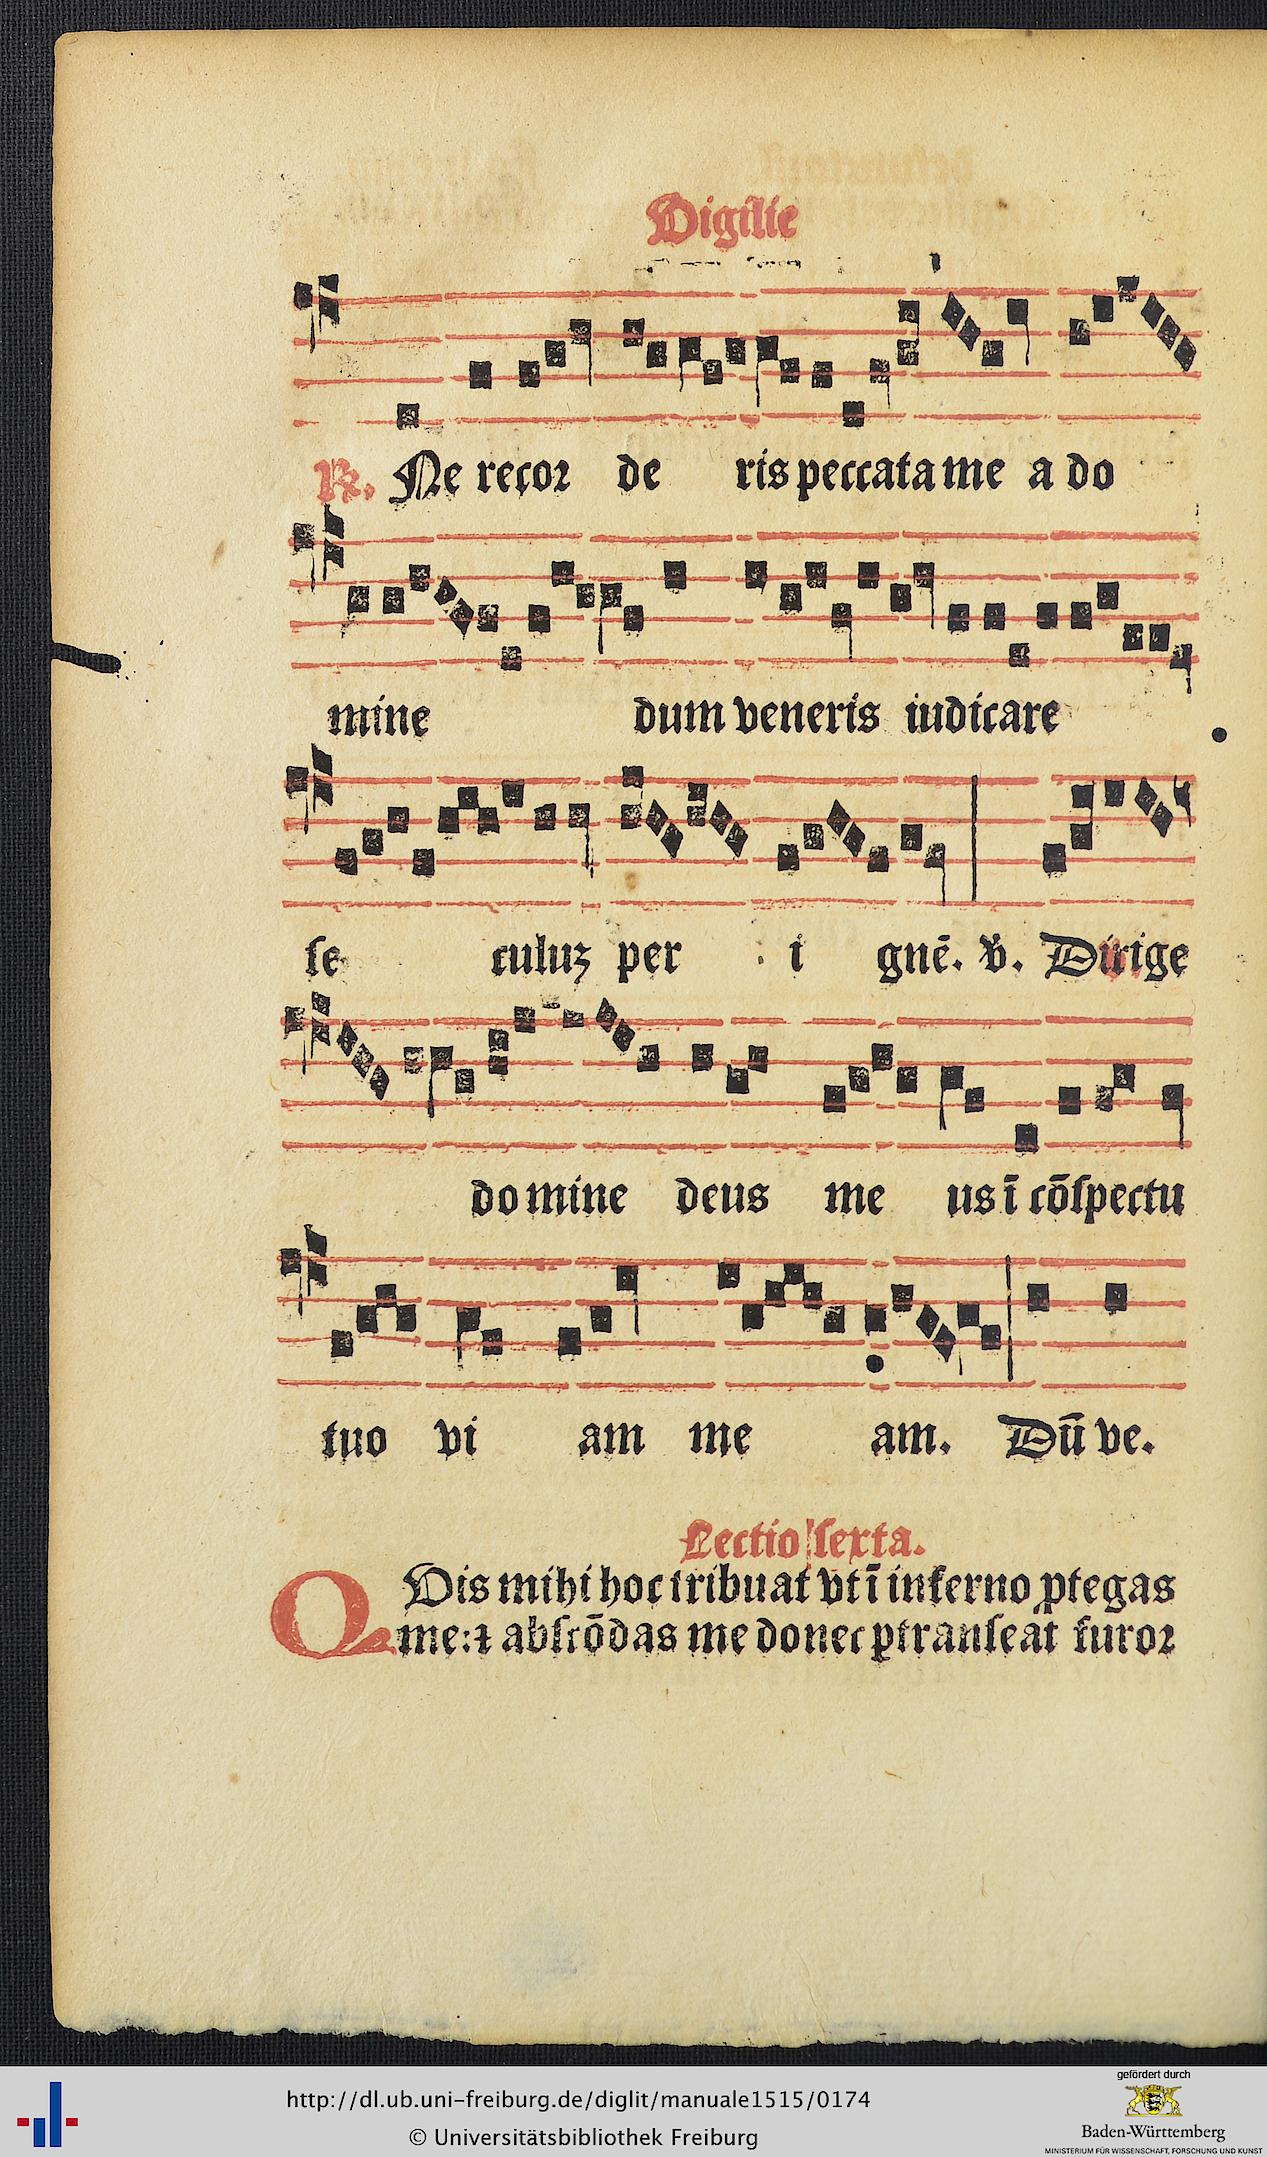 Vigilie
R. Ne recor de ris peccata me a do
mine dum veneris iudicare
se culuz per i gnē. V. Dirige
do mine deus me us ī cōspectu
tuo vi am me am. Dū ve.
Lectio sexta.
QVis mihi hoc tribuat vt ī inferno ꝓtegas
me: ⁊ abscōdas me donec ꝑtranseat furor
http://dl.ub.uni-freiburg.de/diglit/manuale1515/0174
© Universitätsbibliothek Freiburg
gefördert durch
Baden-Württemberg
MINISTERIUM FÜR WISSENSCHAFT, FORSCHUNG UND KUNST